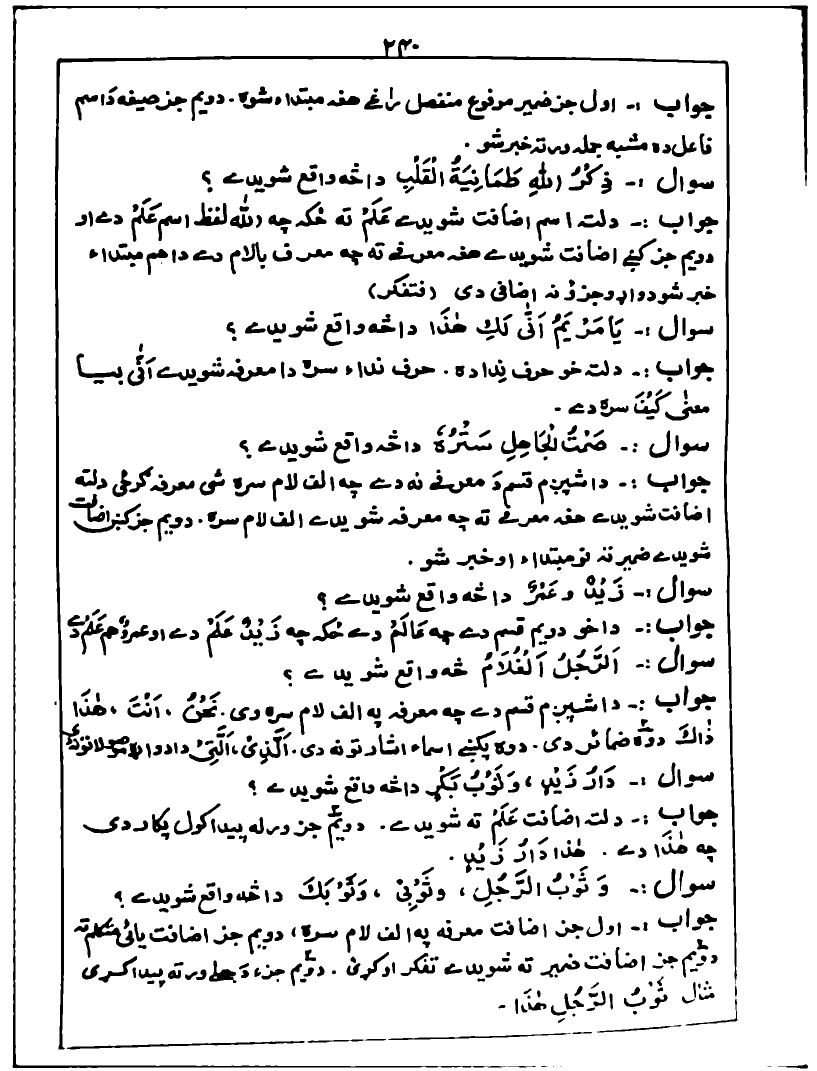 ۲۴۰
جواب :- اول جز ضمیر مرفوع منفصل راغے هغه مبتداء شوه . دویم جز صیغه دَاسم
فاعل ده مشبه جمله ورته خبر شو .
سوال :- ذِکْرُ اللهِ طَمَانِیَةُ الْقَلْبِ داڅه واقع شویدے ؟
جواب :- دلته اسم اضافت شویدے عَلَمْ ته ځکه چه (الله لفظ اسم عَلَمْ دے او
دویم جز کښے اضافت شویدے هغه معرفے ته چه معرف بالام دے داهم مبتداء
خبر شو دواړو جزؤ نه اضافی دی (فتفکر)
سوال :- یَا مَرْیَمُ اَنّٰی لَكِ هٰذَا داڅه واقع شویدے ؟
جواب :- دلته خو حرف نِدا ده . حرف نداء سره دا معرفه شویدے اَنّٰی بیا
معنٰی کَیْفَ سره دے -
سوال :- صَمْتُ الْجَاهِلِ سَتْرُهٗ داڅه واقع شویدے ؟
جواب :- داشپږم قسم دَ معرفے نه دے چه الف لام سره شی معرفه گرځی دلته
اضافت شویدے هغه معرفے ته چه معرفه شویدے الف لام سره . دویم جز کښے اضافت
شویدے ضمیر ته نو مبتداء او خبر شو .
سوال :- زَیْدٌ و عَمْرٌ داڅه واقع شویدے ؟
جواب :- داخو دویم قسم دے چه عَالَمْ دے ځکه چه زَیْدٌ عَلَمْ دے او عمروٌ هم عَلَمْ دے
سوال :- اَلرَّجُلُ اَلْغُلَامُ څه واقع شویدے ؟
جواب :- داشپږم قسم دے چه معرفه په الف لام سره وی. نَحْنُ ، اَنْتَ ، هٰذَا
ذٰاكَ دوه ضمائر دی . دوه پکښے اسماء اشارتونه دی. اَلَّذِیْ، اَلَّتِیْ دا دواړه موصلا نو دی
سوال :- دَارُ زَیْدٍ ، وَثَوْبُ بَکْرٍ داڅه واقع شویدے ؟
جواب :- دلته اضافت عَلَمْ ته شویدے . دویم جز ورله پیدا کول پکار دی
چه هٰذَا دے . هٰذا دَارُ زَیْدٍ .
سوال :- وَ ثَوْبُ الرَّجُلِ ، وثَوْبِیْ ، وَثَوْبَكَ داڅه واقع شویدے ؟
جواب :- اول جز اضافت معرفه په الف لام سره، دویم جز اضافت یائی متکلم ته
دویم جز اضافت ضمیر ته شویدے تفکر اوکړئ . دویم جزء دَجملے ورته پیدا کړی
مثال ثَوْبُ الرَّجُلِ هٰذَا -